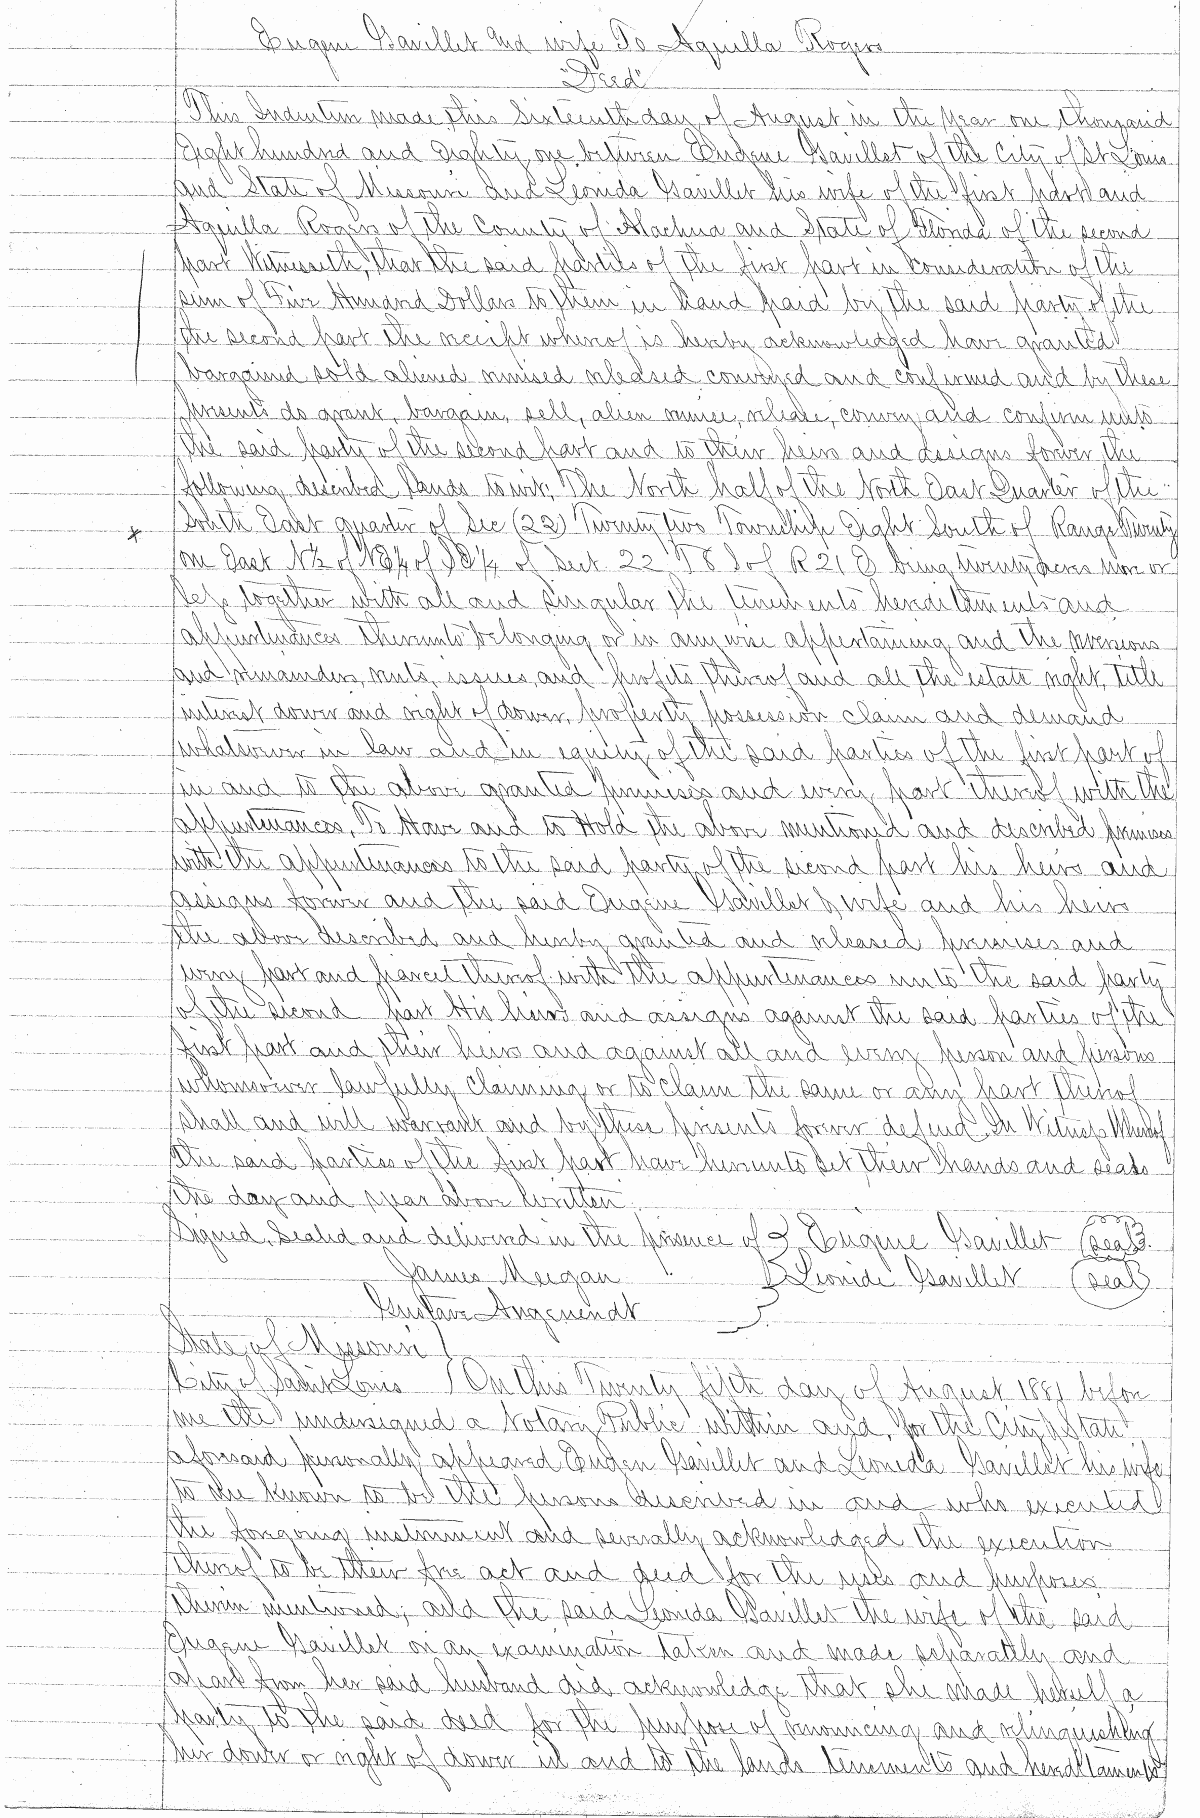 Eugene Gavillet and wife To Aquilla Rogers
"Deed"
This Indenture made this Sixteenth day of August in the Year one thousand
Eight hundred and Eighty one between Eugene Gavillet of the City of St Louis
and State of Missouri and Leonida Gavillet his wife of the first part and
Aquilla Rogers of the County of Alachua and State of Florida of the second
part Witnesseth, that the said parties of the first part in consideration of the
sum of Five Hundred Dollars to them in hand paid by the said party of the
the second part the receipt whereof is hereby acknowledged have granted
bargained sold aliened remised released conveyed and confirmed and by these
presents do grant, bargain, sell, alien remise, release, convey and confirm unto
the said party of the second part and to their heirs and assigns forever, the
following described lands to wit; The North half of the North East Quarter of the
South East quarter of Sec (22) Twenty two Township Eight South of Range Twenty
* one East N½ of NE¼ of SE¼ of Sect. 22 T8 S of R 21 E being twenty acres more or
less, together with all and singular the tenements hereditaments and
appurtenances thereunto belonging or in anywise appertaining and the reversions
and remainders, rents, issues, and profits thereof and all the estate right, title
interest dower and right of dower, property possession claim and demand
whatsoever in law and in equity of the said parties of the first part of
in and to the above granted premises and every part thereof with the
appurtenances, To Have and to Hold the above mentioned and described premises
with the appurtenances to the said party of the second part his heirs and
assigns forever and the said Eugene Gavillet & wife and his heirs
the above described and hereby granted and released premises and
every part and parcel thereof with the appurtenances unto the said party
of the second part His heirs and assigns against the said parties of the
first part and their heirs and against all and every person and persons
whomsoever lawfully claiming or to claim the same or any part thereof
shall and will warrant and by these presents forever defend. In Witness Whereof
the said parties of the first part have hereunto set their hands and seals
the day and year above written.
Signed, Sealed and delivered in the presence of } Eugene Gavillet (seal)
James Meegan } Leonide Gavillet (seal)
Gustave Angenendt }
State of Missouri )
City of Saint Louis ( On this Twenty fifth day of August 1881 before
me the undersigned a Notary Public within and, for the City & State
aforesaid personally appeared Eugen Gavillet and Leonida Gavillet his wife
to me known to be the persons described in and who executed
the foregoing instrument and severally acknowledged the execution
thereof to be their free act and deed for the uses and purposes
therein mentioned, and the said Leonida Gavillet the wife of the said
Eugene Gavillet on an examination taken and made separately and
apart from her said husband did acknowledge that she made herself a
party to the said deed for the purpose of renouncing and relinquishing
her dower or right of dower in and to the lands tenements and hereditaments